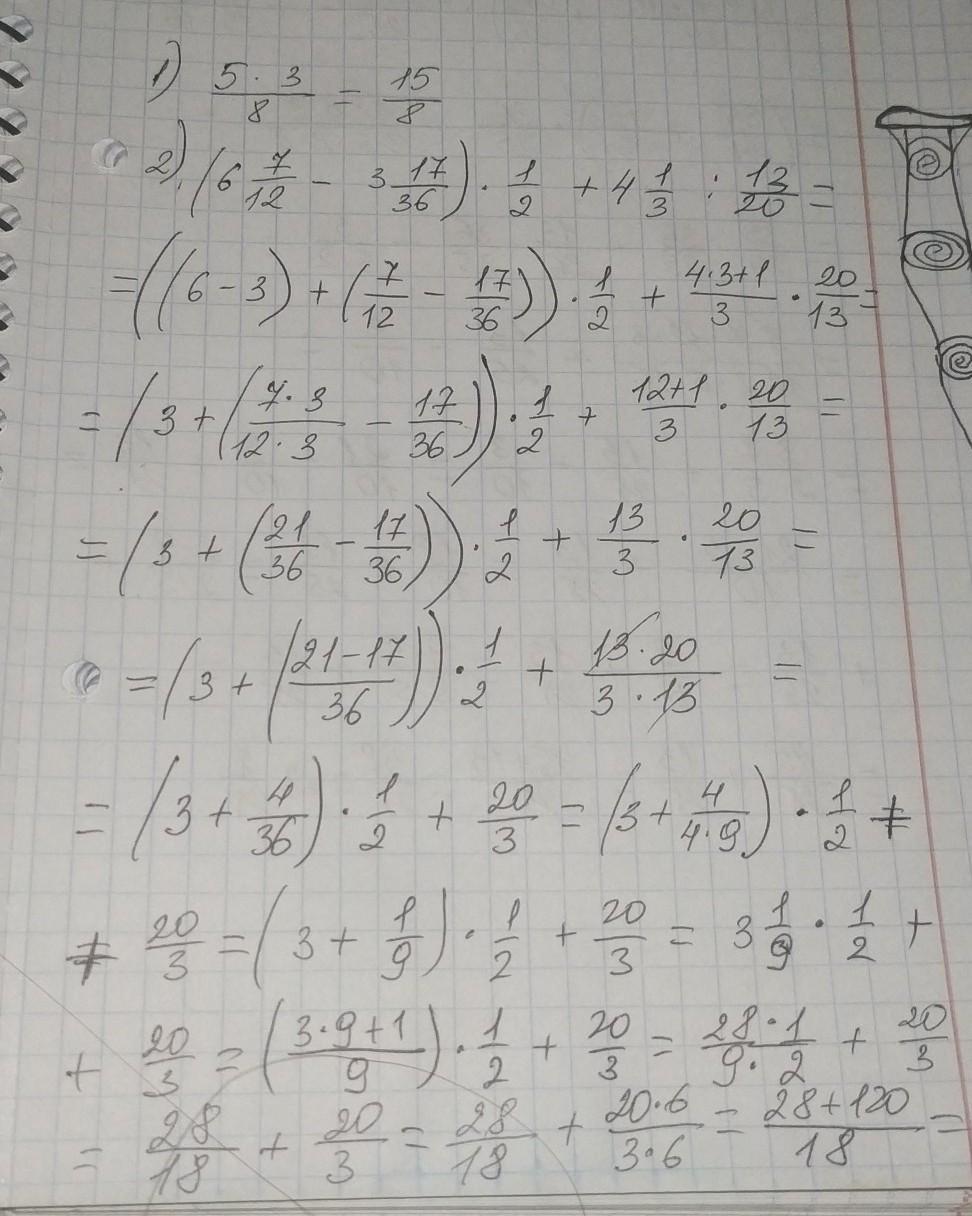 1) 5·3/8 = 15/8
2) (6 7/12 - 3 17/36) · 1/2 + 4 1/3 : 13/20 =
= ((6 - 3) + (7/12 - 17/36)) · 1/2 + 4·3+1/3 · 20/13 =
= (3 + (7·3/12·3 - 17/36)) · 1/2 + 12+1/3 · 20/13 =
= (3 + (21/36 - 17/36)) · 1/2 + 13/3 · 20/13 =
= (3 + (21-17/36)) · 1/2 + 13·20/3·13 =
= (3 + 4/36) · 1/2 + 20/3 = (3 + 4/4·9) · 1/2 +
+ 20/3 = (3 + 1/9) · 1/2 + 20/3 = 3 1/9 · 1/2 +
+ 20/3 = (3·9+1/9) · 1/2 + 20/3 = 28·1/9·2 + 20/3
= 28/18 + 20/3 = 28/18 + 20·6/3·6 = 28+120/18 =